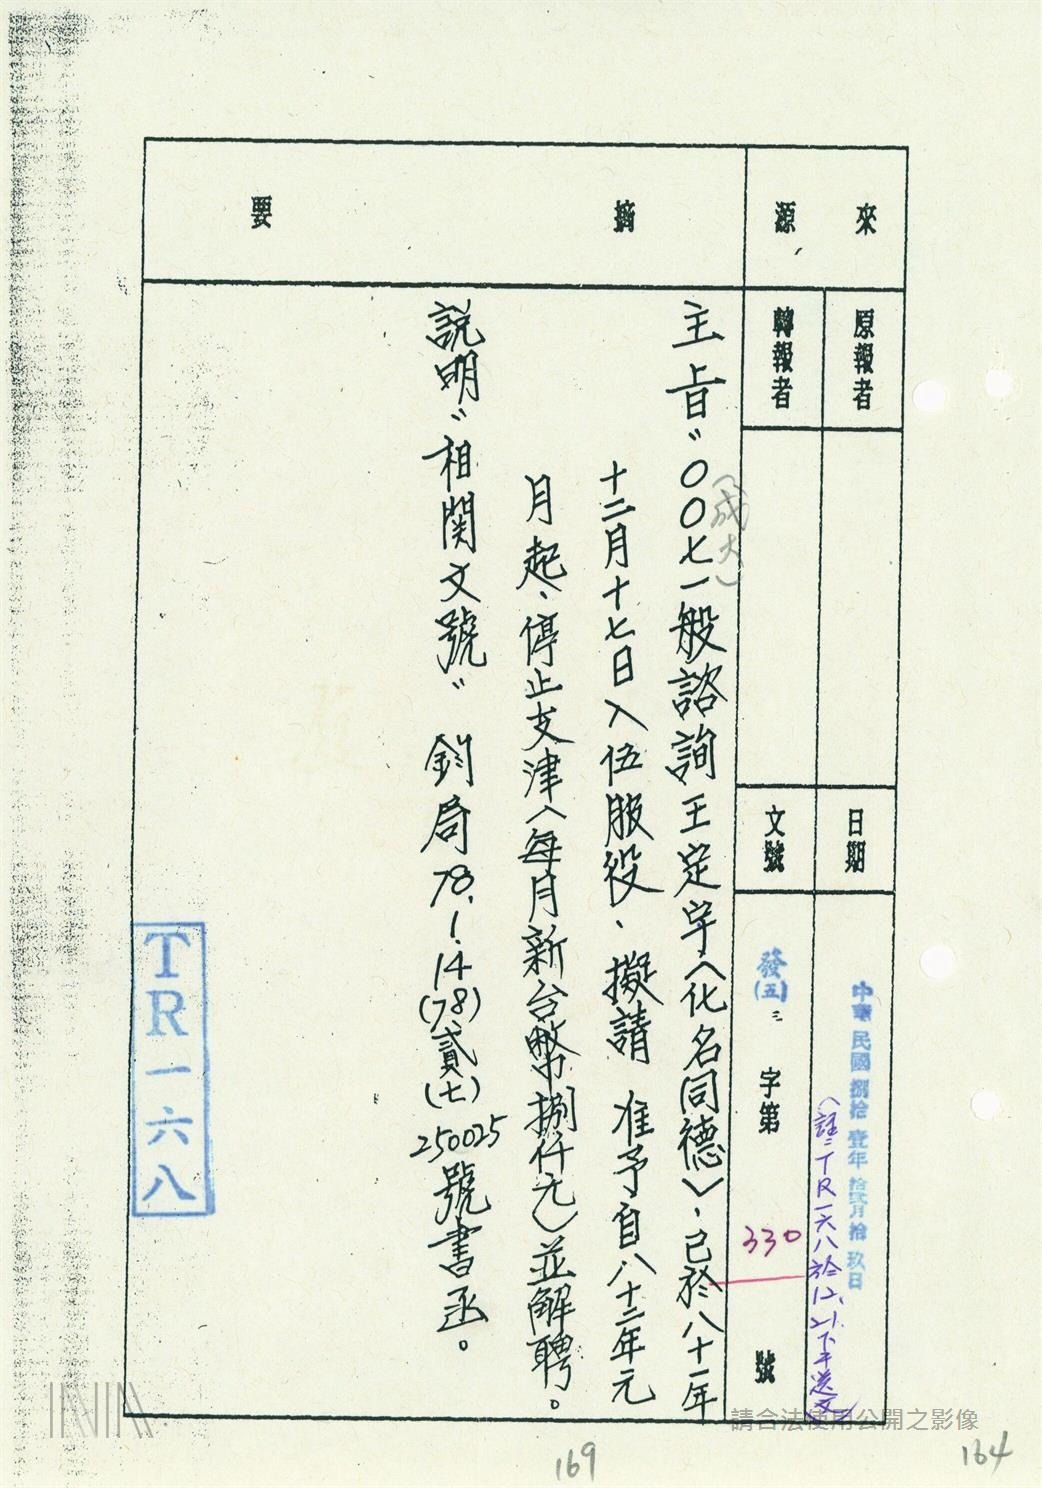 來源
摘要
原報者
轉報者
日期
中華民國捌拾壹年拾貳月拾玖日
(註:TR一六八於12.21.下午送文)
文號
發(五)三字第330號
主旨:〇〇七一般諮詢王定宇(化名同德)、已於八十一年
(成大)
十二月十七日入伍服役、擬請 准予自八十二年元
月起、停止支津(每月新台幣捌仟元)並解聘。
說明:相關文號:鈞局78.1.14(78)貳(七)250025號書函。
TR一六八
請合法使用公開之影像
169
164